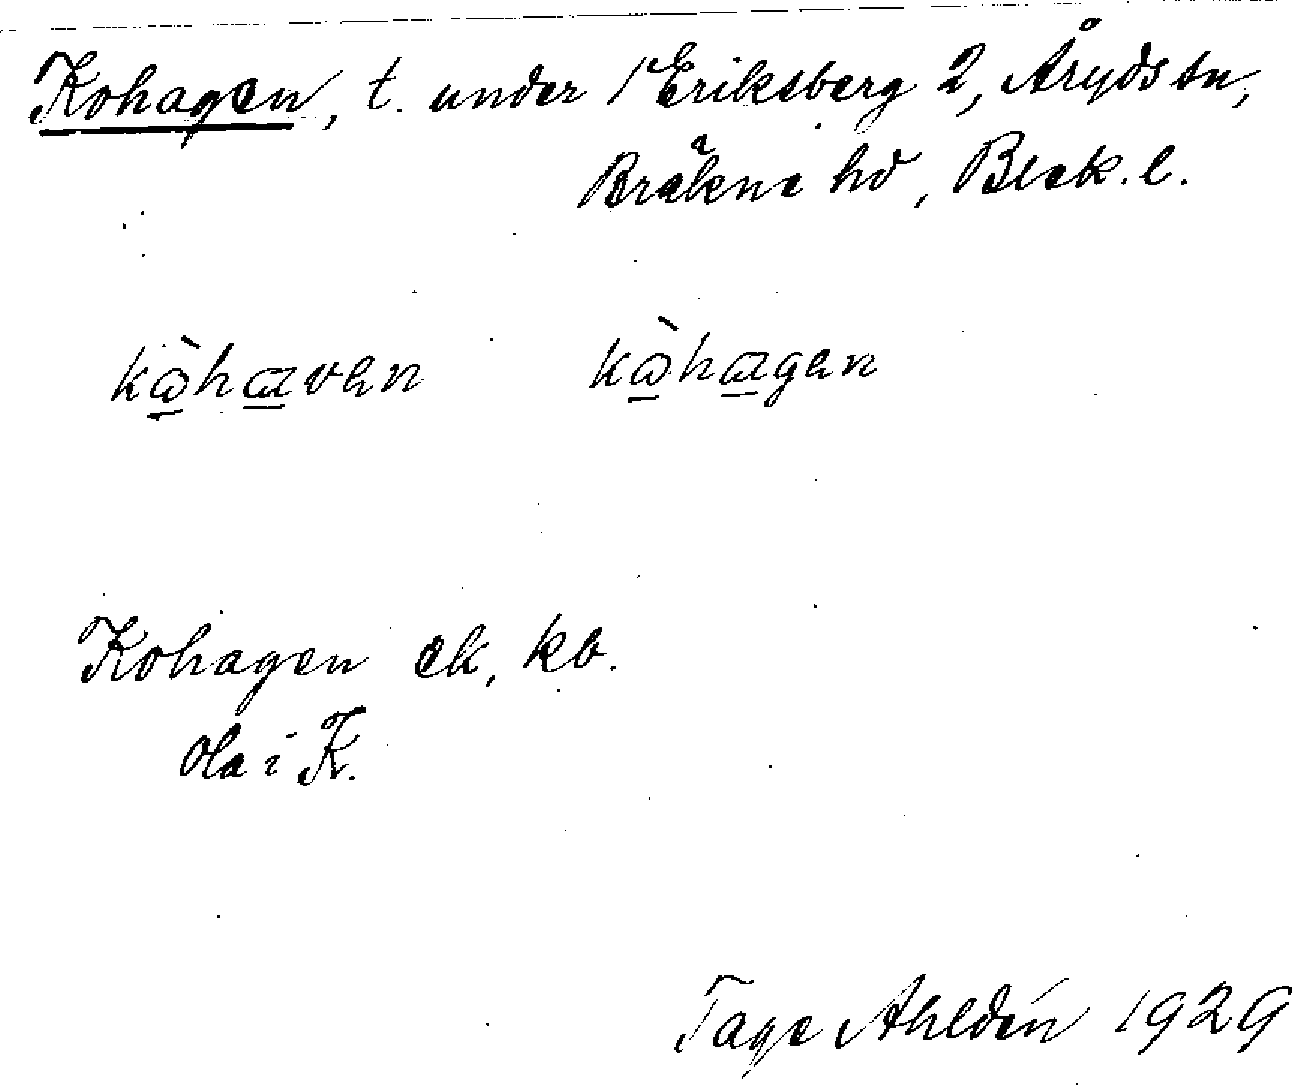 Kohagen, t. under 1 Eriksberg 2, Åryds sn,
Bräkne hd, Blek. l.
kὼhαven kὼhαgen
Kohagen ek, kb.
Ola i K.
Tage Ahldén 1929